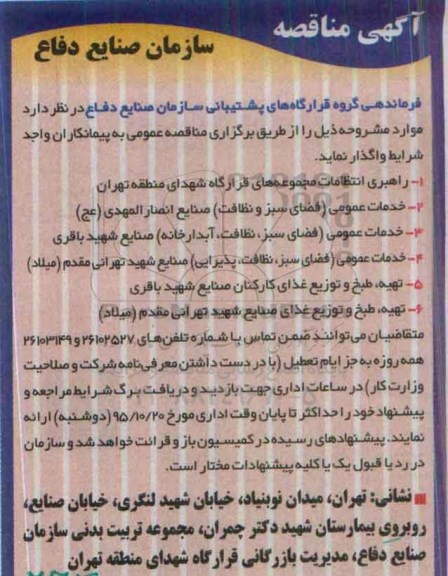 آگهی مناقصه
سازمان صنایع دفاع
فرماندهی گروه قرارگاه‌های پشتیبانی سازمان صنایع دفاع در نظر دارد
موارد مشروحه ذیل را از طریق برگزاری مناقصه عمومی به پیمانکاران واجد
شرایط واگذار نماید.
۱- راهبری انتظامات مجموعه‌های قرارگاه شهدای منطقه تهران
۲- خدمات عمومی (فضای سبز و نظافت) صنایع انصار المهدی (عج)
۳- خدمات عمومی (فضای سبز، نظافت، آبدارخانه) صنایع شهید باقری
۴- خدمات عمومی (فضای سبز، نظافت، پذیرایی) صنایع شهید تهرانی مقدم (میلاد)
۵- تهیه، طبخ و توزیع غذای کارکنان صنایع شهید باقری
۶- تهیه، طبخ و توزیع غذای صنایع شهید تهرانی مقدم (میلاد)
متقاضیان می‌توانند ضمن تماس با شماره تلفن‌های ۲۶۱۰۲۵۲۷ و ۲۶۱۰۳۱۴۹
همه روزه به جز ایام تعطیل (با در دست داشتن معرفی‌نامه شرکت و صلاحیت
وزارت کار) در ساعات اداری جهت بازدید و دریافت برگ شرایط مراجعه و
پیشنهاد خود را حداکثر تا پایان وقت اداری مورخ ۹۵/۱۰/۲۰ (دوشنبه) ارائه
نمایند. پیشنهادهای رسیده در کمیسیون باز و قرائت خواهد شد و سازمان
در رد یا قبول یک یا کلیه پیشنهادات مختار است.
نشانی: تهران، میدان نوبنیاد، خیابان شهید لنگری، خیابان صنایع،
روبروی بیمارستان شهید دکتر چمران، مجموعه تربیت بدنی سازمان
صنایع دفاع، مدیریت بازرگانی قرارگاه شهدای منطقه تهران